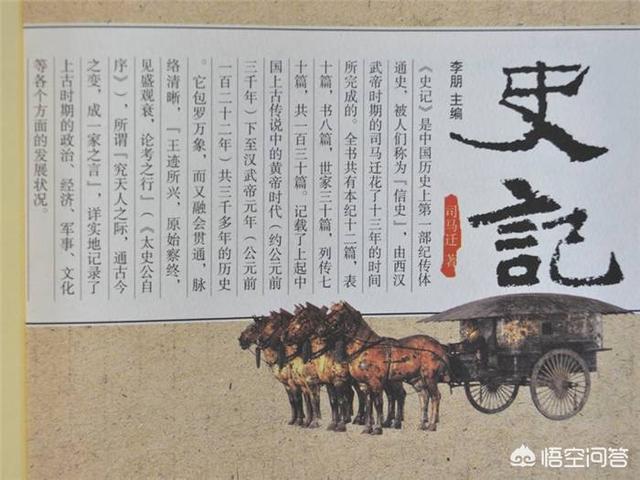 史記
司马迁 著
李朋 主编
《史记》是中国历史上第一部纪传体
通史，被人们称为「信史」，由西汉
武帝时期的司马迁花了十三年的时间
所完成的。全书共有本纪十二篇，表
十篇，书八篇，世家三十篇，列传七
十篇，共一百三十篇。记载了上起中
国上古传说中的黄帝时代（约公元前
三千年）下至汉武帝元年（公元前
一百二十二年）共三千多年的历史
。它包罗万象，而又融会贯通，脉
络清晰，「王迹所兴，原始察终，
见盛观衰，论考之行」（《太史公自
序》），所谓「究天人之际，通古今
之变，成一家之言」，详实地记录了
上古时期的政治、经济、军事、文化
等各个方面的发展状况。
悟空问答